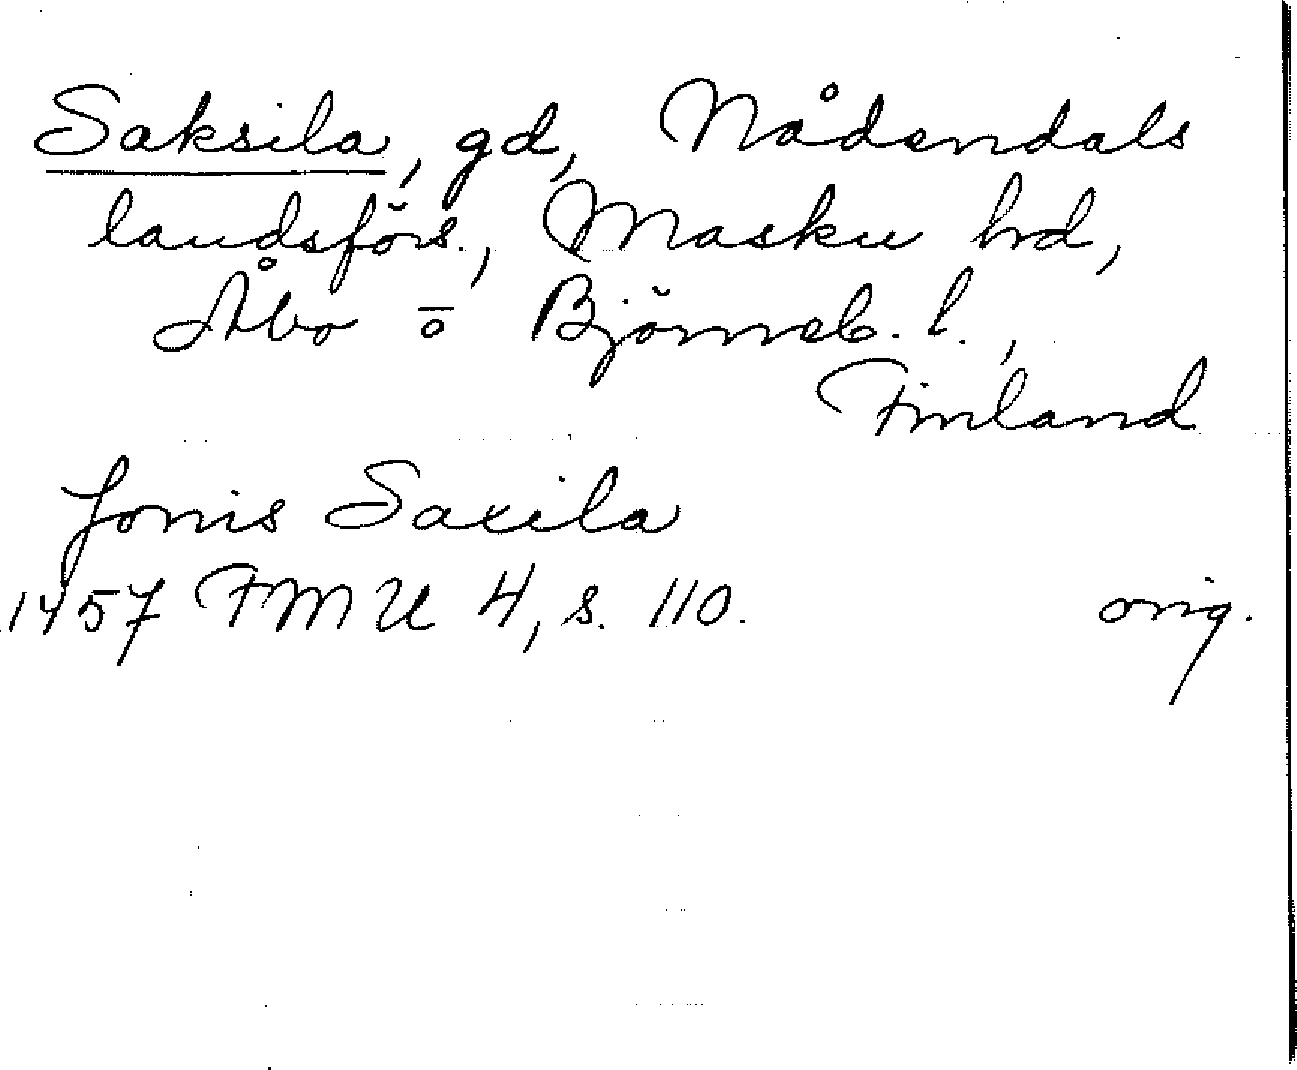 Saksila, gd, Nådendals
landsförs., Masku hd,
Åbo o Björneb. l.,
Finland
Jonis Saxila
1457 FMU 4, s. 110. orig.